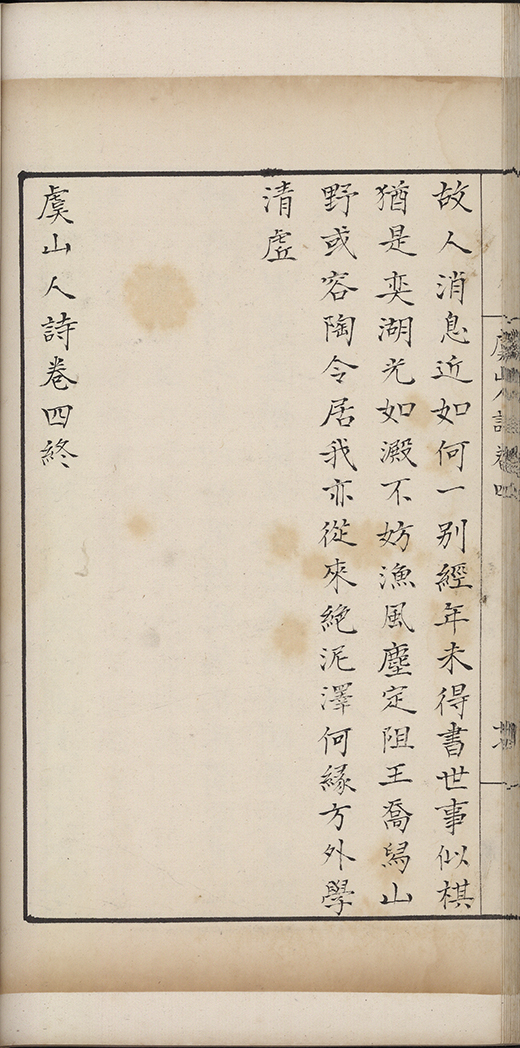 虞山人詩卷四
故人消息近如何一别經年未得書世事似棋
猶是奕湖光如澱不妨漁風塵定阻王喬舄山
野或容陶令居我亦從來絶泥滓何縁方外學
清虗
虞山人詩卷四終